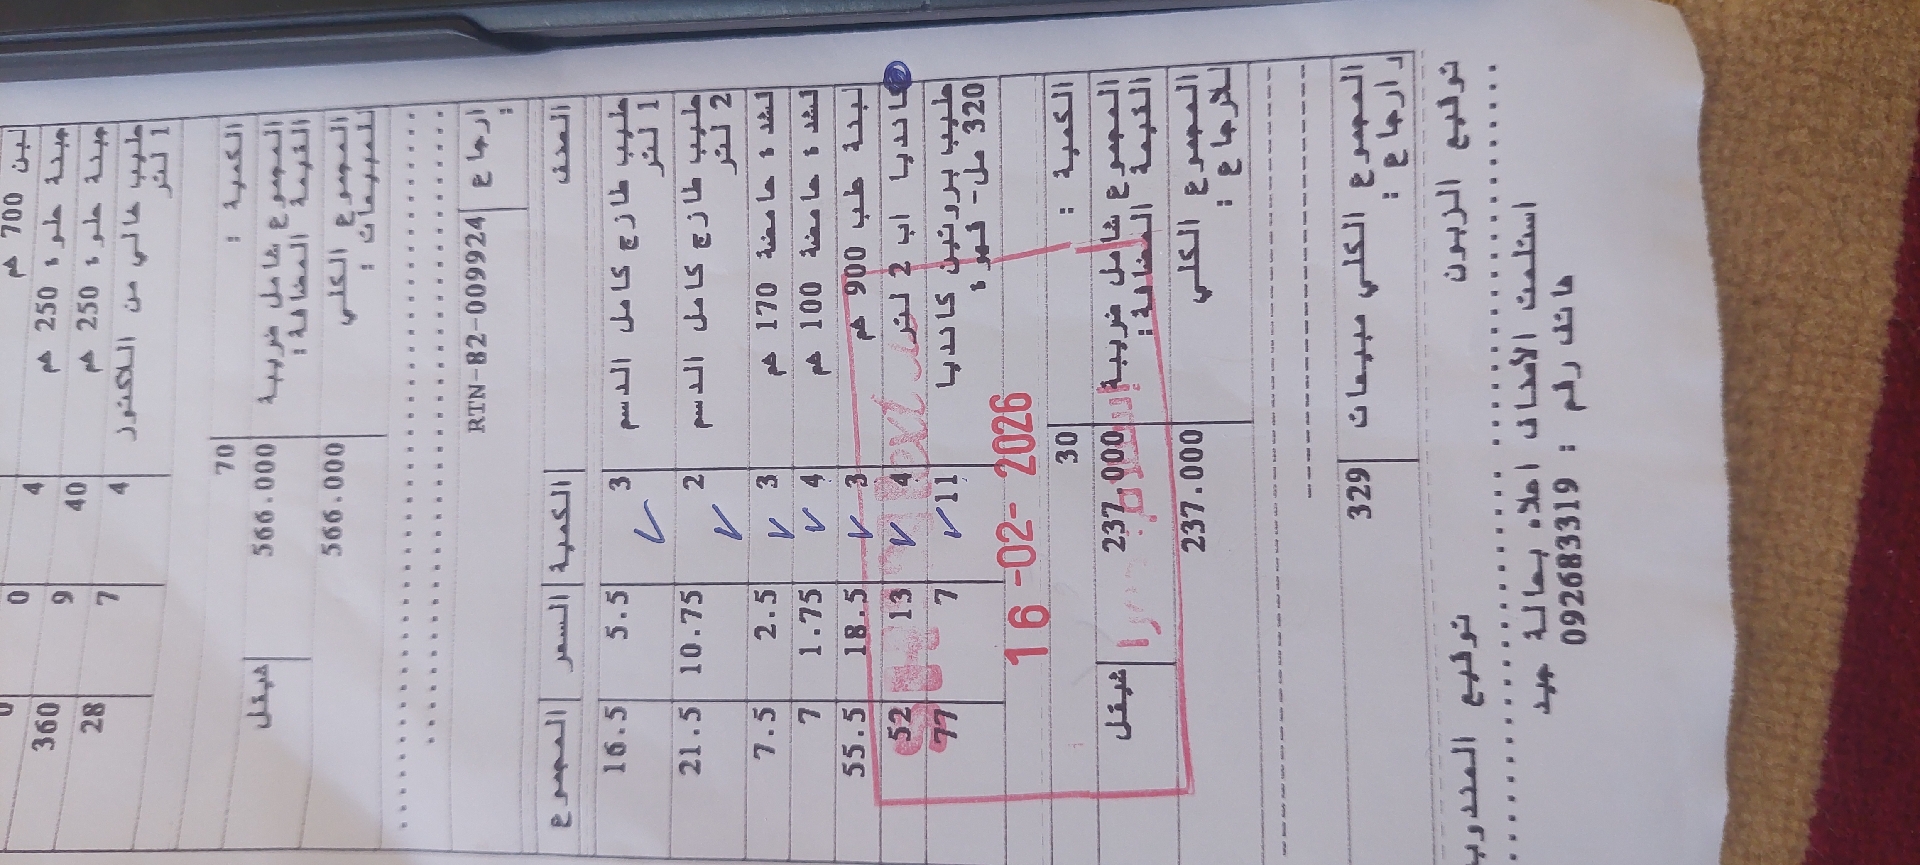 لبن 700 غم 4 0 0
جبنة حلوة 250 غم 40 9 360
جبنة حلوة 250 غم
حليب خالي من اللاكتوز 1 لتر 4 7 28
الكمية : 70
المجموع شامل ضريبة القيمة المضافة: 566.000 شيقل
المجموع الكلي للمبيعات : 566.000
ارجاع : RTN-82-009924
الصنف الكمية السعر المجموع
حليب طازج كامل الدسم 1 لتر 3 5.5 16.5
حليب طازج كامل الدسم 2 لتر 2 10.75 21.5
قشدة حامضة 170 غم 3 2.5 7.5
قشدة حامضة 100 غم 4 1.75 7
لبنة طب 900 غم 3 18.5 55.5
كانديا اب 2 لتر 4 13 52
حليب بروتين كانديا 320 مل- قهوة 11 7 77
16-02-2026
الكمية : 30
المجموع شامل ضريبة القيمة المضافة: 237.000 شيقل
المجموع الكلي للارجاع : 237.000
المجموع الكلي مبيعات دارجاع : 329
توقيع الزبون توقيع المندوب
استلمت الأصناف اعلاه بحالة جيدة
هاتف رقم : 092683319